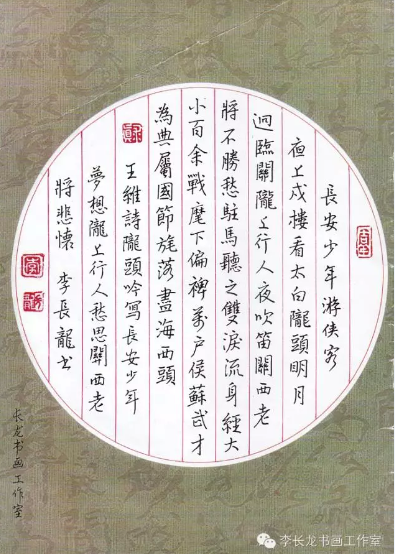 長安少年游俠客
夜上戍樓看太白隴頭明月
迥臨關隴上行人夜吹笛關西老
將不勝愁駐馬聽之雙淚流身經大
小百余戰麾下偏裨萬户侯蘇武才
為典屬國節旄落盡海西頭
王維詩隴頭吟寫長安少年
夢想隴上行人愁思關西老
將悲懷 李長龍书
长龙书画工作室
李长龙书画工作室